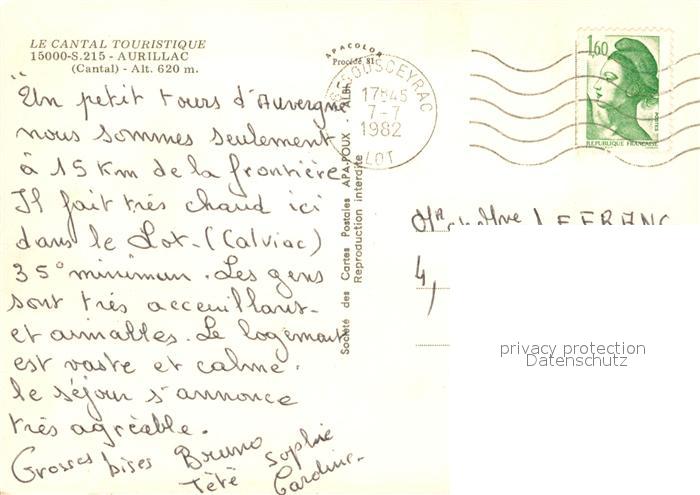 LE CANTAL TOURISTIQUE
15000-S.215 - AURILLAC
(Cantal) - Alt. 620 m.
"Un petit tours d'Auvergne
nous sommes seulement
à 15 Km de la frontière
Il fait très chaud ici
dans le Lot-(Calviac)
35° minimum. Les gens
sont très acceuillant-
et aimables. Le logement
est vaste et calme.
le séjour s'annonce
très agréable.
Grosses bises Bruno Sophie
Tété
APACOLOR
Procédé 81
Société des Cartes Postales APA-POUX - ALBI
Reproduction interdite
SOUSCEYRAC
17H45
7-7
1982
LOT
1,60
POSTES
REPUBLIQUE FRANÇAISE
Mr et Mme LEFRANC
4,
privacy protection
Datenschutz